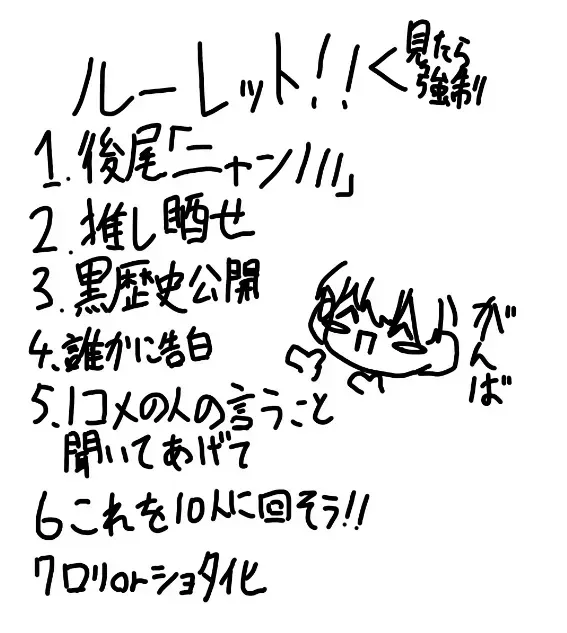 ルーレット!!<見たら
強制
1.後尾「ニャン///」
2.推し晒せ
3.黒歴史公開
4.誰かに告白
5.1コメの人の言うこと
聞いてあげて
6これを10人に回そう!!
7ロリorショタ化
がんば